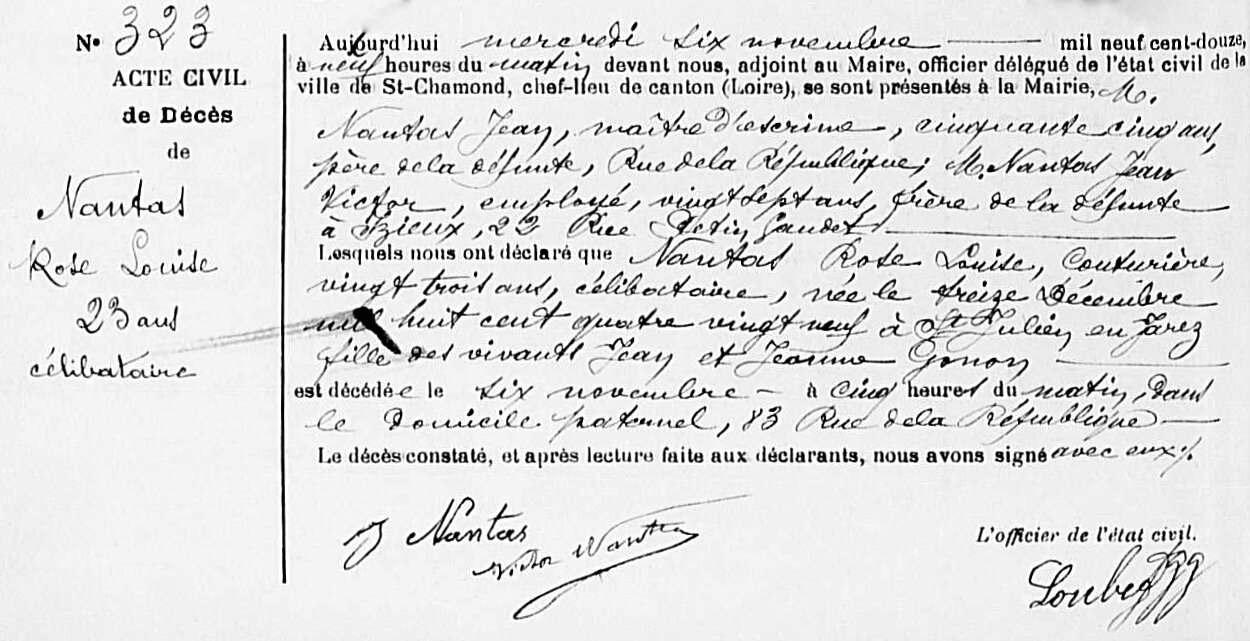 N° 323
ACTE CIVIL
de Décès
de
Nantas
Rose Louise
23 ans
célibataire
Aujourd'hui mercredi six novembre mil neuf cent-douze,
à neuf heures du matin devant nous, adjoint au Maire, officier délégué de l'état civil de la
ville de St-Chamond, chef-lieu de canton (Loire), se sont présentés à la Mairie, M.
Nantas Jean, maître d'escrime, cinquante cinq ans,
père de la défunte, Rue de la République; M. Nantas Jean
Victor, employé, vingt sept ans, frère de la défunte
à Izieux, 22 Rue Petin Gaudet
Lesquels nous ont déclaré que Nantas Rose Louise, couturière,
vingt trois ans, célibataire, née le treize Décembre
mil huit cent quatre vingt neuf à St Julien en Jarez
fille des vivants Jean et Jeanne Gonon
est décédée le six novembre - à cinq heures du matin, dans
le domicile paternel, 83 Rue de la République
Le décès constaté, et après lecture faite aux déclarants, nous avons signé avec eux ./.
J Nantas
Victor Nantas
L'officier de l'état civil.